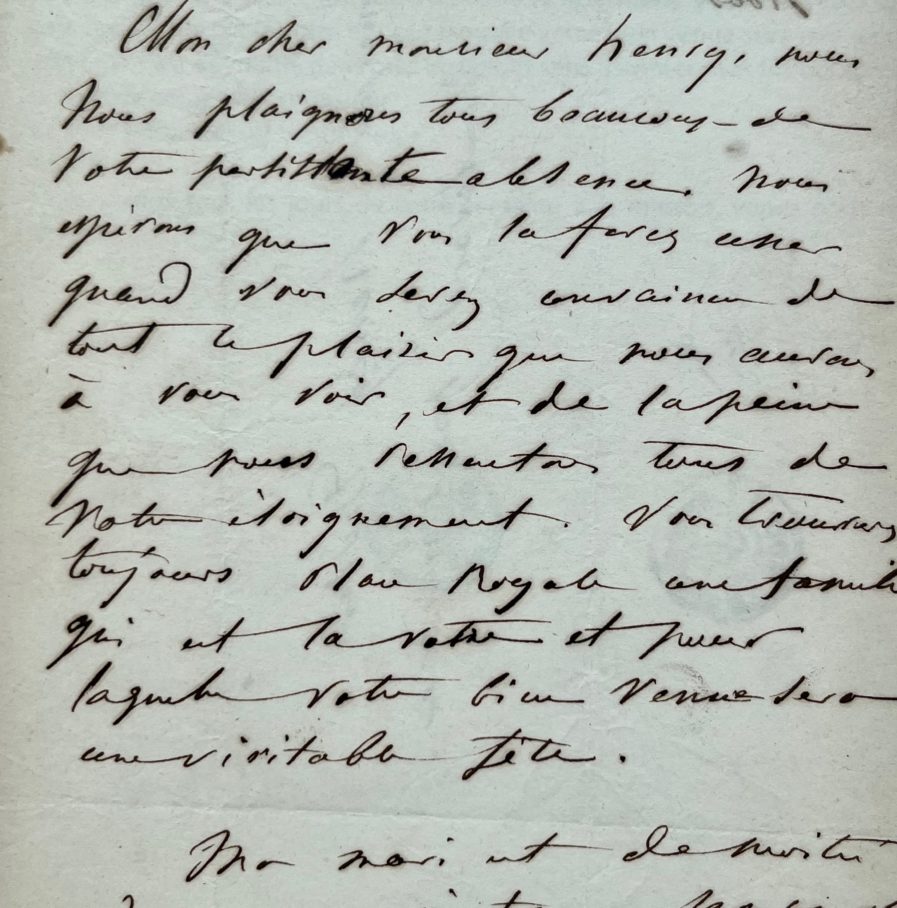 Mon cher monsieur henry, nous
nous plaignons tous beaucoup de
votre persistante absence. nous
espérons que vous la ferez cesser
quand vous serez convaincu de
tout le plaisir que nous aurons
à vous voir, et de la peine
que nous ressentons tous de
votre éloignement. Vous trouverez
toujours Place Royale une famille
qui est la votre et pour
laquelle votre bien venue sera
une véritable fête.
Mon mari est de moitié